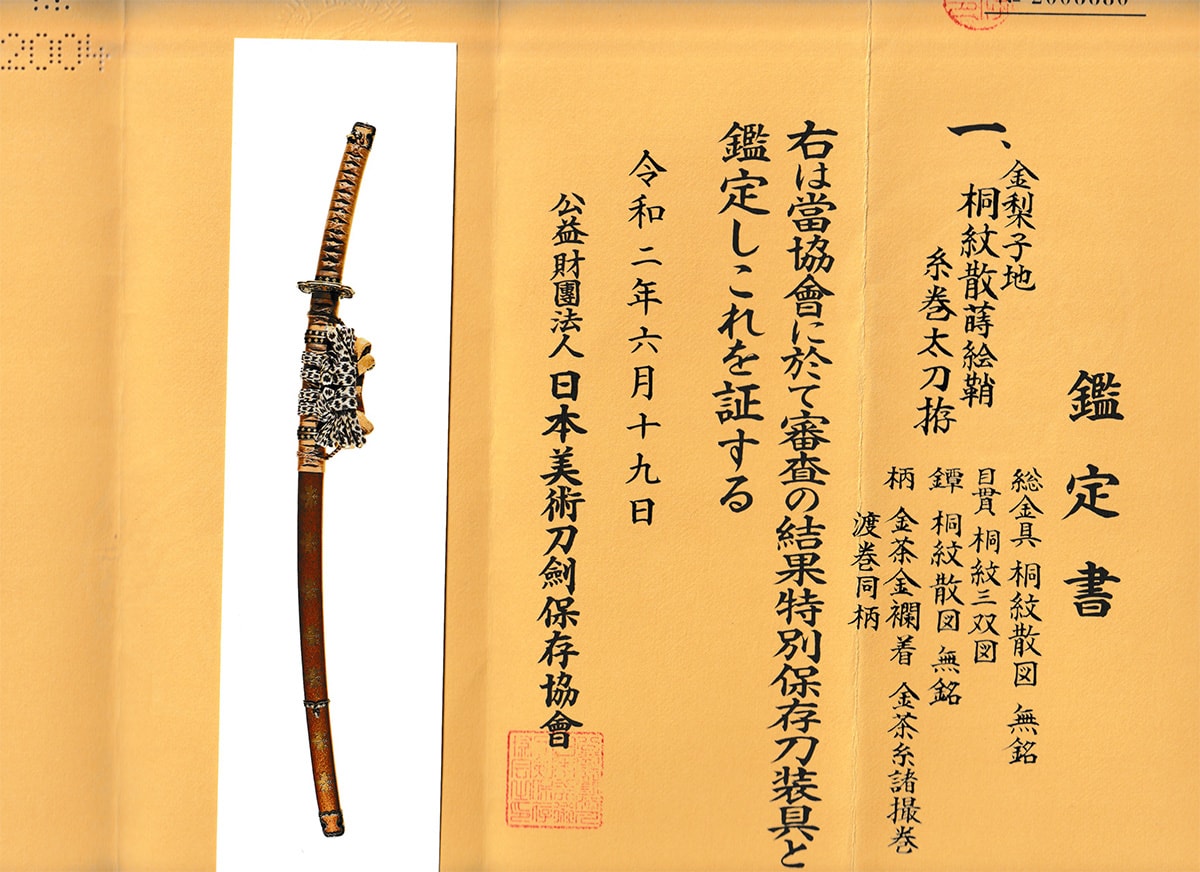 鑑定書
一、金梨子地
桐紋散蒔絵鞘
糸巻太刀拵
総金具 桐紋散図 無銘
目貫 桐紋三双図
鐔 桐紋散図 無銘
柄 金茶金襴着 金茶糸諸撮巻
渡巻同柄
右は當協會に於て審査の結果特別保存刀装具と
鑑定しこれを証する
令和二年六月十九日
公益財團法人 日本美術刀劍保存協會
2004